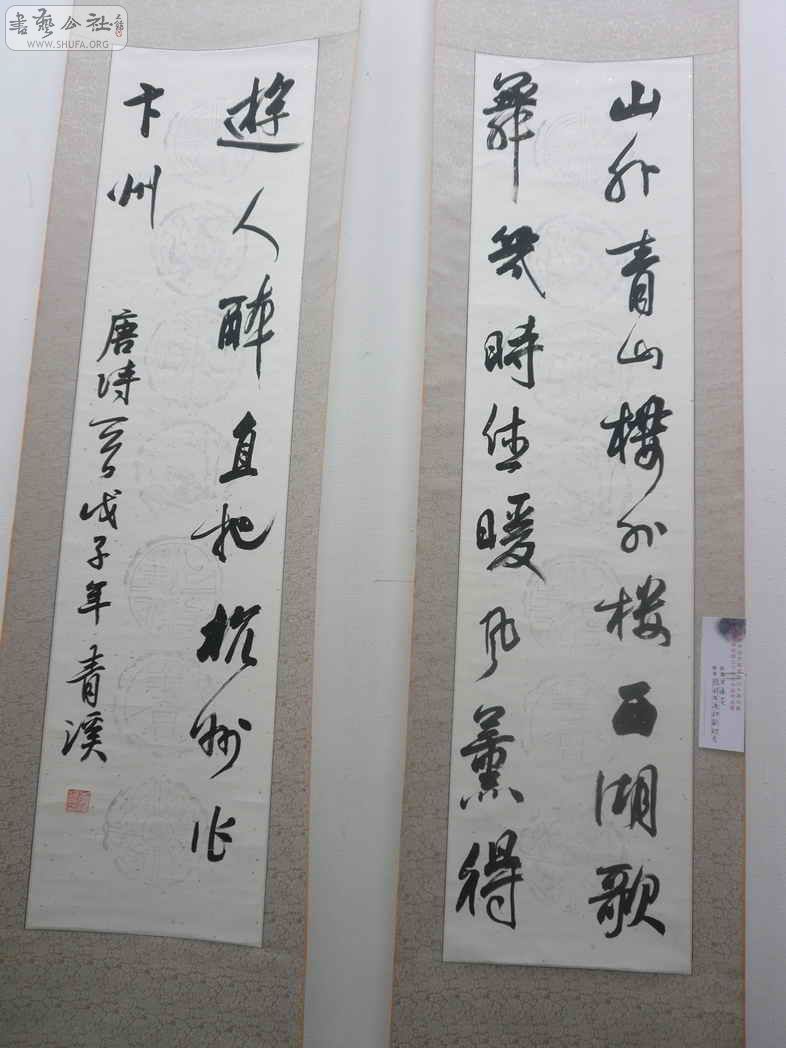 山外青山樓外樓西湖歌
舞幾時住暖风薰得
遊人醉直把杭州作
卞州
唐诗一首戊子年青溪
書藝公社
WWW.SHUFA.ORG